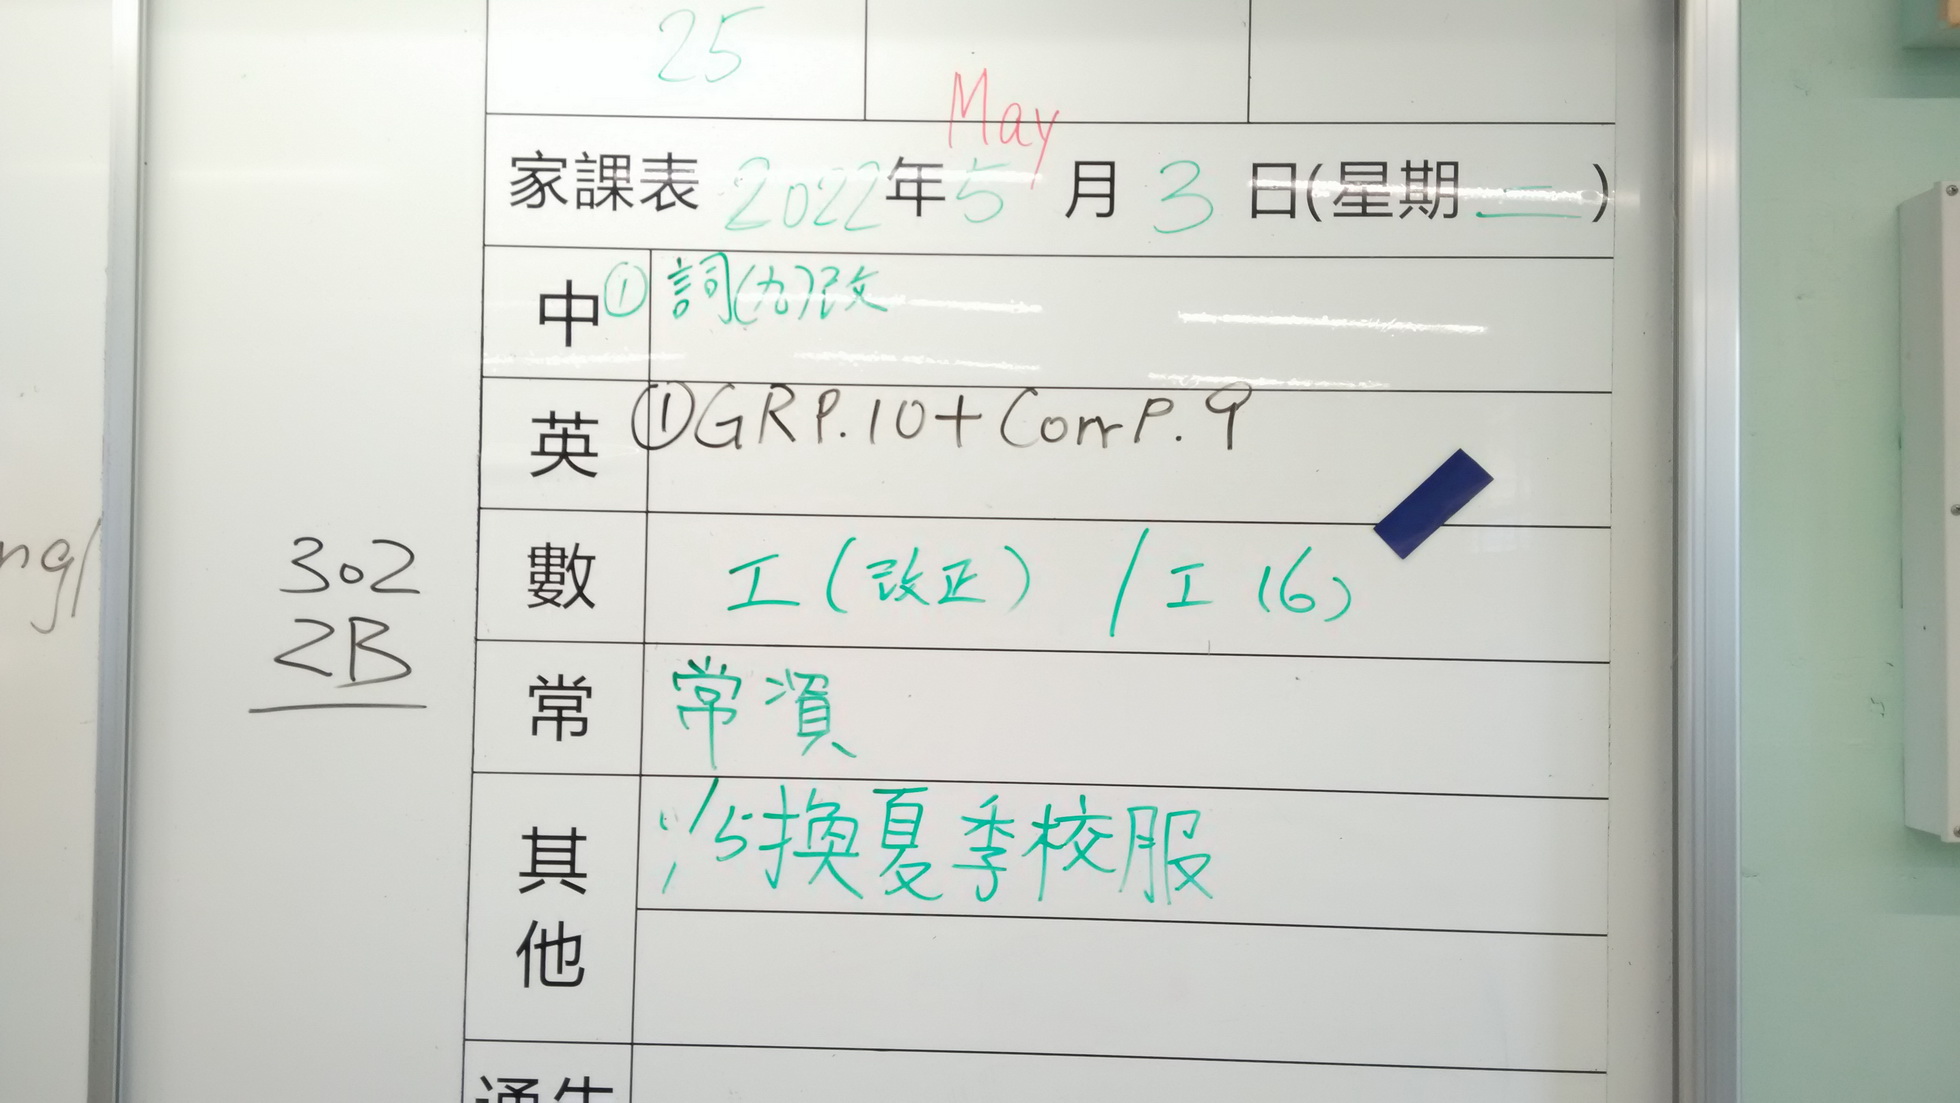 25
May
家課表 2022年5月3日(星期二)
中 ① 詞(九)改
英 ①GR P.10+Corr P.9
數 工(改正) / 工(6)
302
2B
常 常濱
其他 /5換夏季校服